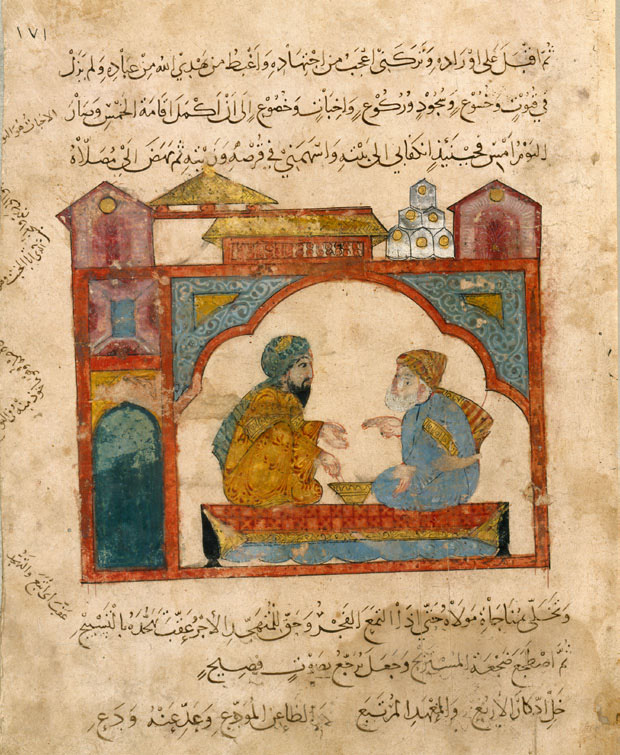 ١٧١
ثم اقبل على اوراده وتركني اعجب من اجتهاده واغبط من يهدي الله من عباده ولم يزل
في قنوت وخشوع وسجود وركوع واخبات وخضوع الى ان اكمل اقامة الخمس وصار
اليوم امس فحينئذ انكفا بي الى بيته واسهمني في قرصه وزيته ثم نهض الى مصلاه
وتخلى بمناجاة مولاه حتى اذا التمع الفجر وحق للمتهجد الاجر عقب تهجده بالتسبيح
ثم اضطجع ضجعة المستريح وجعل يرجع بصوت فصيح
خل ادكار الاربع والمعهد المرتبع والظاعن المودع وعد عنه ودع
عقب اي اتبع